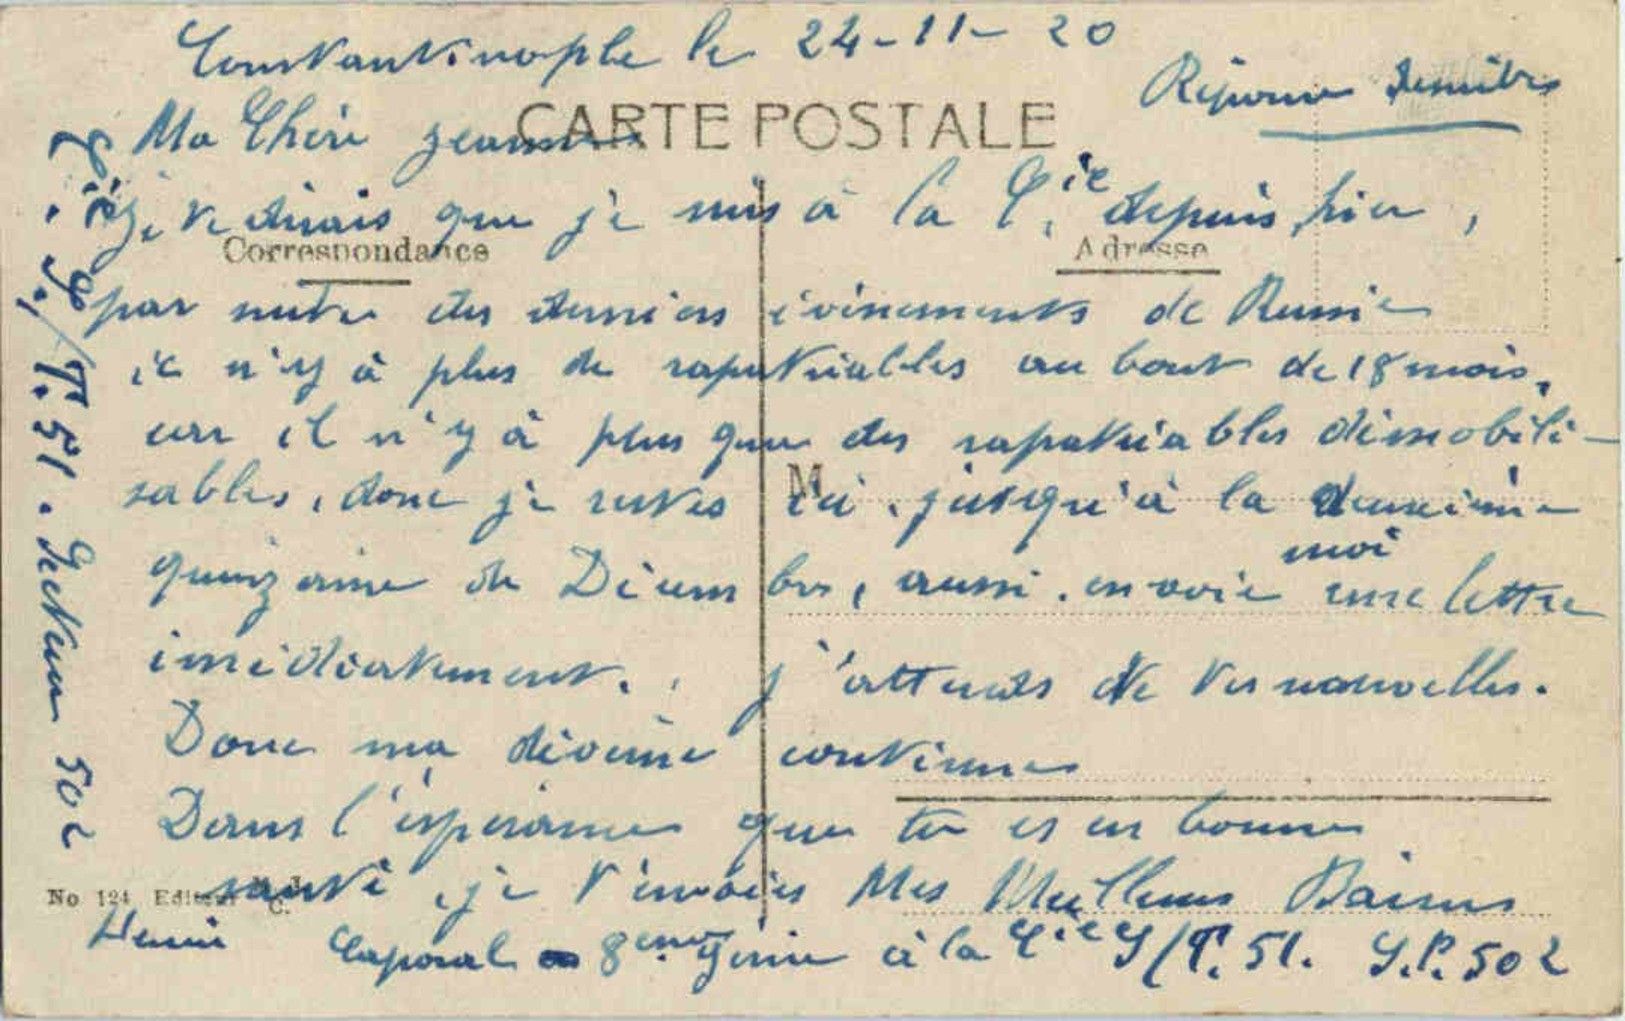 Constantinople le 24-11-20
Réponse
CARTE POSTALE
Ma Chère Jeanne
Je te dirais que je suis à la Cie depuis hier,
Correspondance
Adresse
par suite des derniers évènements de Russie
il n'y à plus de rapatriables au bout de 18 mois,
car il n'y à plus que des rapatriables démobili-
sables, donc je restes ici, jusqu'à la deuxième
M
quinzaine de Décembre, aussi envoie moi une lettre
imédiatement. j'attends de tes nouvelles.
Donc ma divine continues
Dans l'éspérance que tu es en bonne
santé, je t'envoies Mes Meilleurs Baisers
No 124 Editeur
Henri Caporal 8ème Génie à la Cie S/T. 51. S.P. 502
Cie S/T. 51. Secteur 502